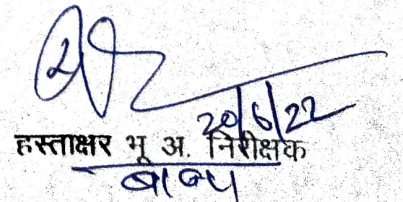 20/6/22
हस्ताक्षर भू अ. निरीक्षक